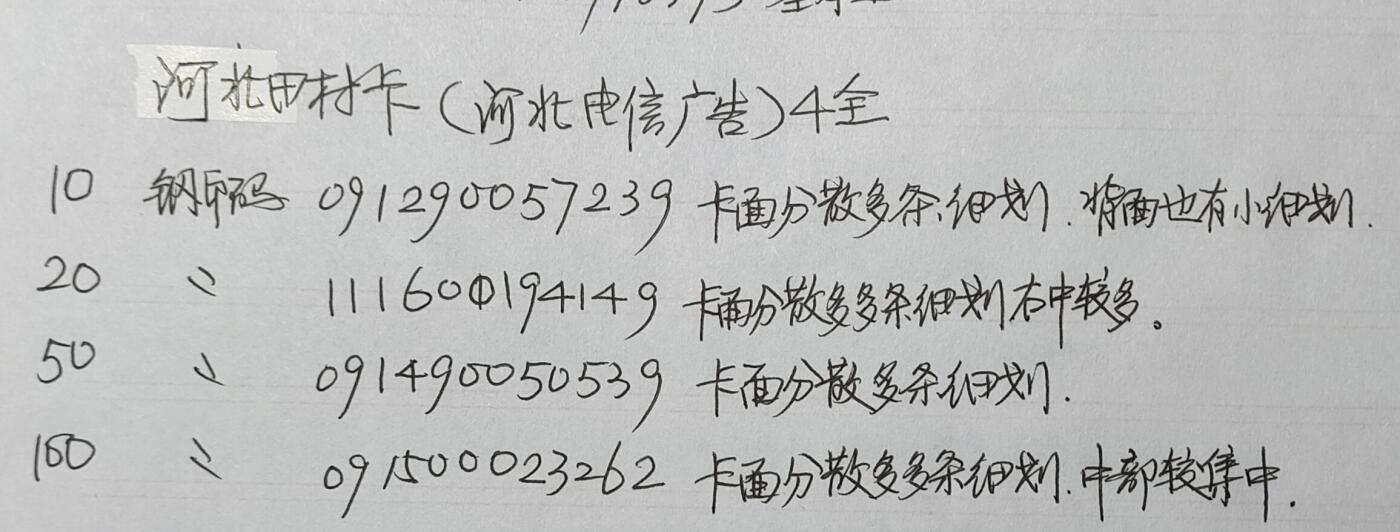 河北田村卡（河北电信广告）4全
10 钢印码 091290057239 卡面分散多条细划.背面也有小细划.
20 〃 111600194149 卡面分散多多条细划右中较多。
50 〃 091490050539 卡面分散多条细划.
100 〃 091500023262 卡面分散多多条细划.中部较集中.